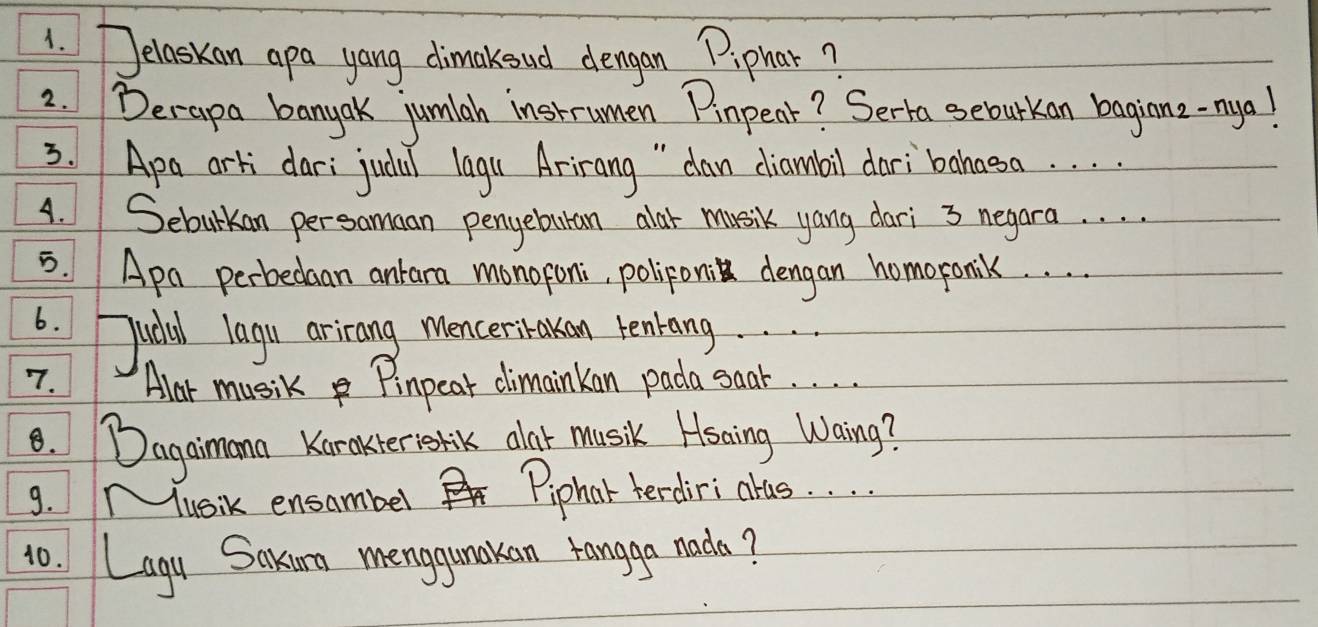 1. Jelaskan apa yang dimaksud dengan Piphat?
2. Berapa banyak jumlah instrumen Pinpeat? Serta sebutkan bagian2-nya!
3. Apa arti dari judul lagu Arirang" dan diambil dari bahasa ....
4. Sebutkan persamaan penyebutan alat musik yang dari 3 negara ....
5. Apa perbedaan antara monofoni, polifoni dengan homofonik ....
6. Judul lagu arirang menceritakan tentang ....
7. Alat musik Pinpeat dimainkan pada saat ....
8. Bagaimana karakteristik alat musik Hsaing Waing?
9. Musik ensambel Piphat terdiri atas ....
10. Lagu Sakura menggunakan tangga nada?